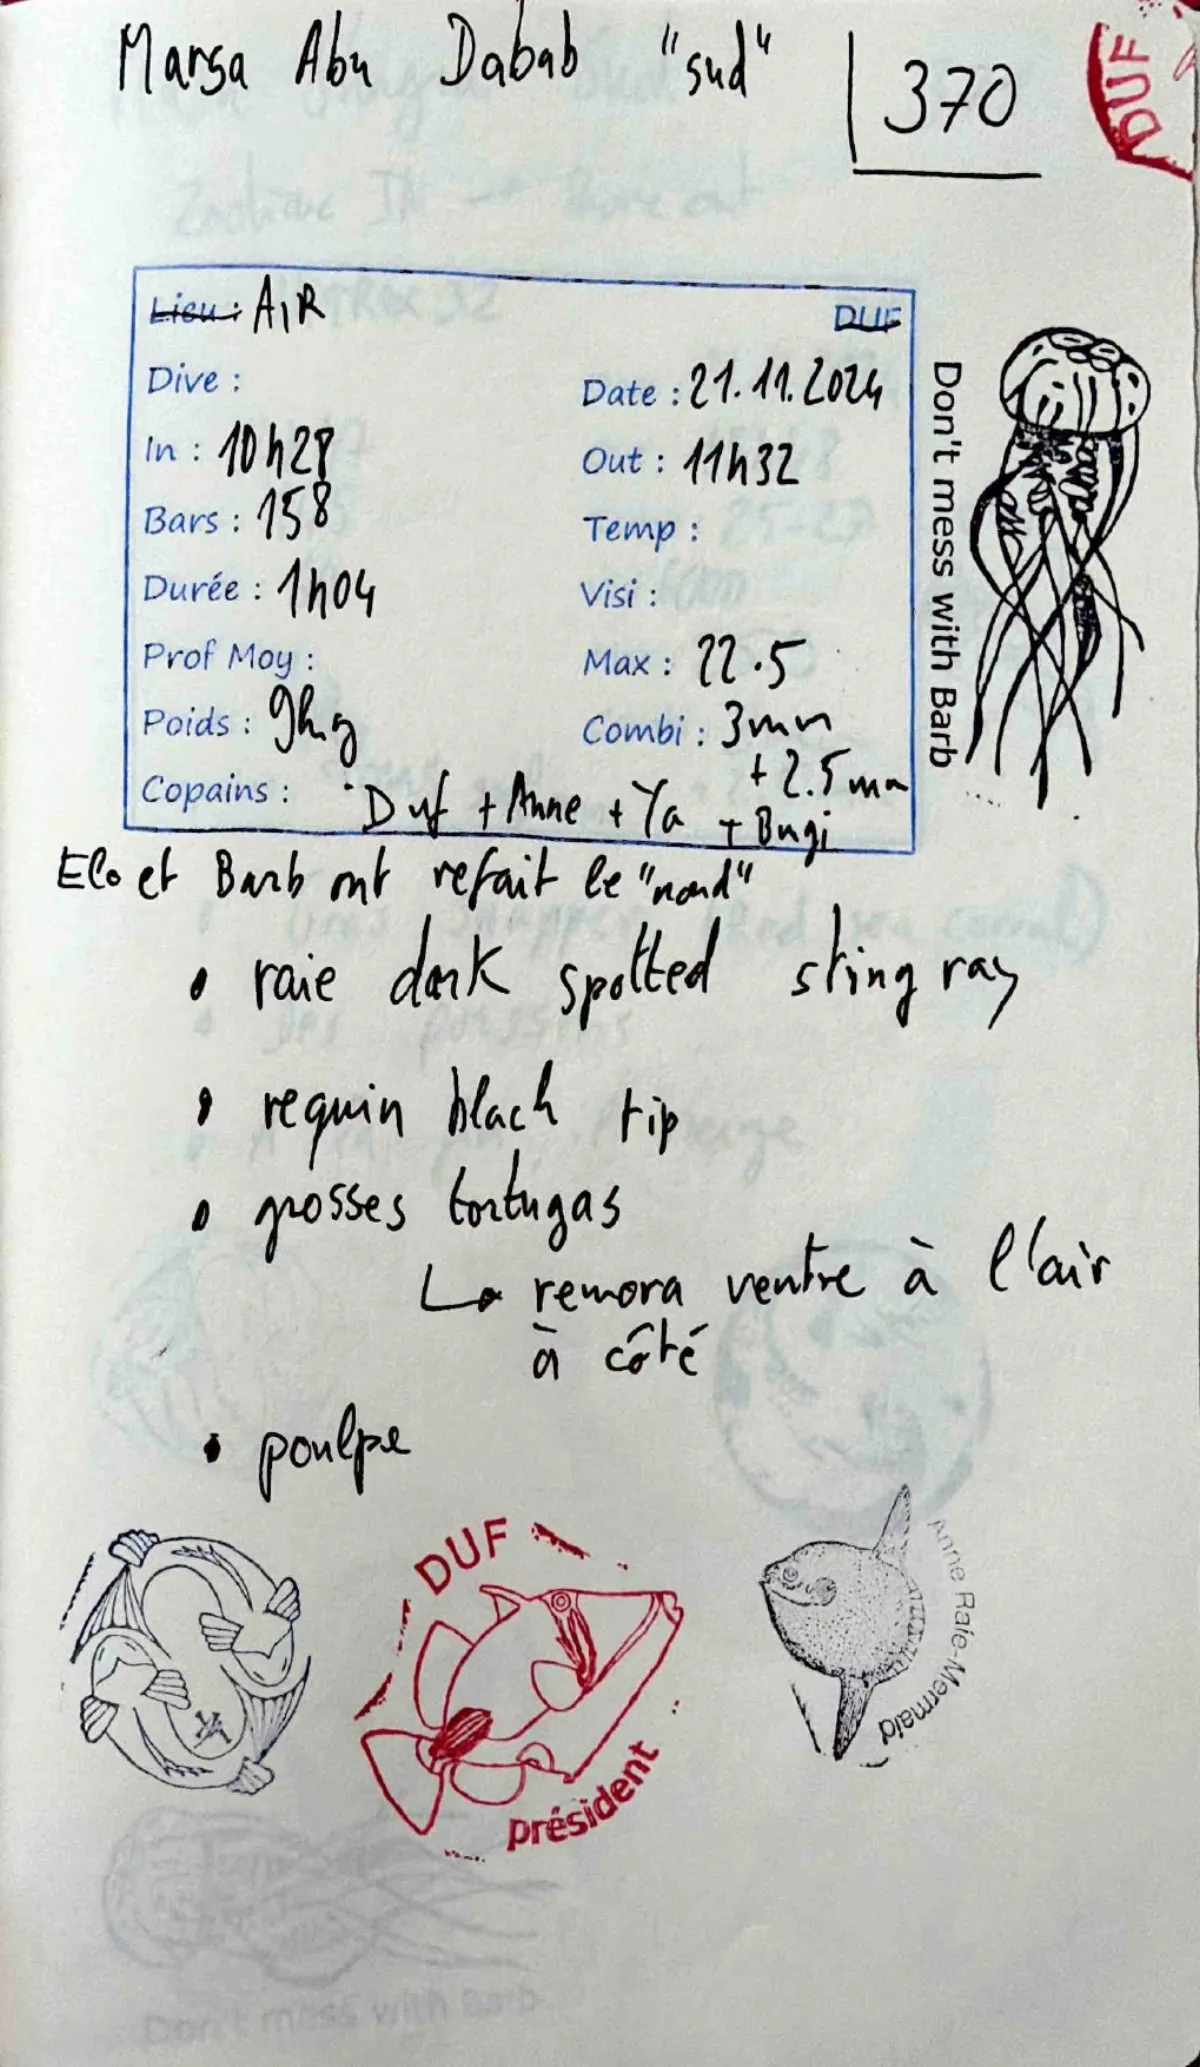 Marsa Abu Dabab "sud"
370
DUF
Lieu : AIR
DUF
Dive :
Date : 21.11.2024
In : 10h28
Out : 11h32
Bars : 158
Temp :
Durée : 1h04
Visi :
Prof Moy :
Max : 22.5
Poids : 9kg
Combi : 3mm
+ 2.5mm
Copains : Duf + Anne + Ya + Bugi
Don't mess with Barb
Elo et Barb ont refait le "nord"
• raie dark spotted sting ray
• requin black tip
• grosses tortugas
↳ remora ventre à l'air
à côté
• poulpe
DUF
président
Anne Raie-Mermaid
Don't mess with Barb